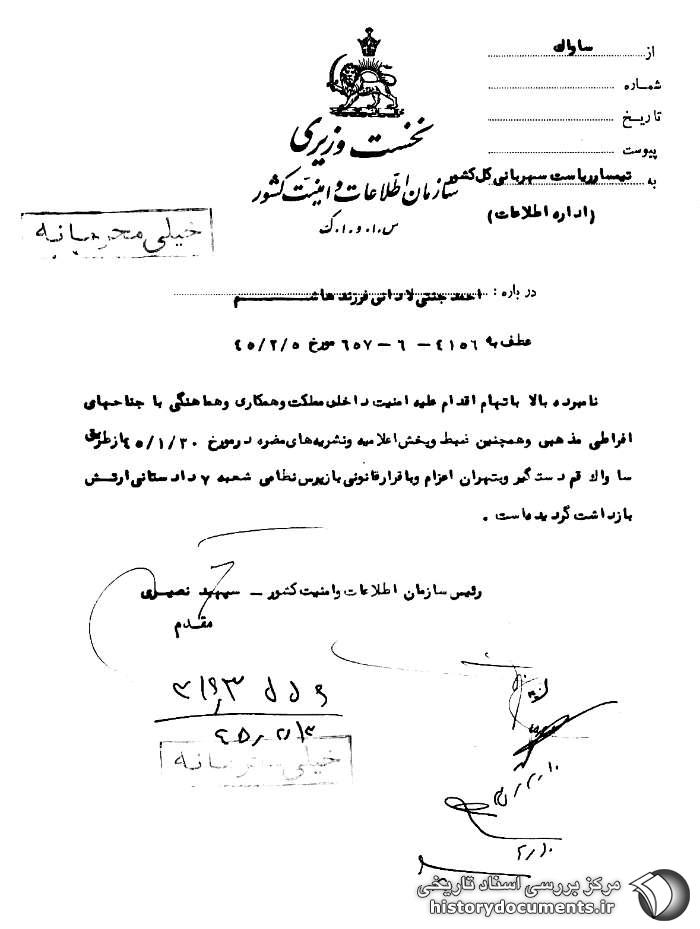 از ساواک
شماره
تاریخ
پیوست
به تیمسار ریاست شهربانی کل کشور
(اداره اطلاعات)
نخست وزیری
سازمان اطلاعات و امنیت کشور
س.ا.و.ا.ک
خیلی محرمانه
درباره : احمد جنتی لادانی فرزند هاشم
عطف به ۴۱۵۶ - ۶ - ۶۵۷ مورخ ۴۵/۲/۵
نامبرده بالا باتهام اقدام علیه امنیت داخلی مملکت وهمکاری وهماهنگی با جناحهای
افراطی مذهبی وهمچنین ضبط وپخش اعلامیه ونشریه‌های مضره درمورخ ۴۵/۱/۲۰ ازطریق
ساواک قم دستگیر وبتهران اعزام وباقرارقانونی بازپرس نظامی شعبه ۷ دادستانی ارتش
بازداشت گردیده‌است .
رئیس سازمان اطلاعات وامنیت کشور - سپهبد نصیری
مقدم
خیلی محرمانه
۲/۱۰
مرکز بررسی اسناد تاریخی
historydocuments.ir